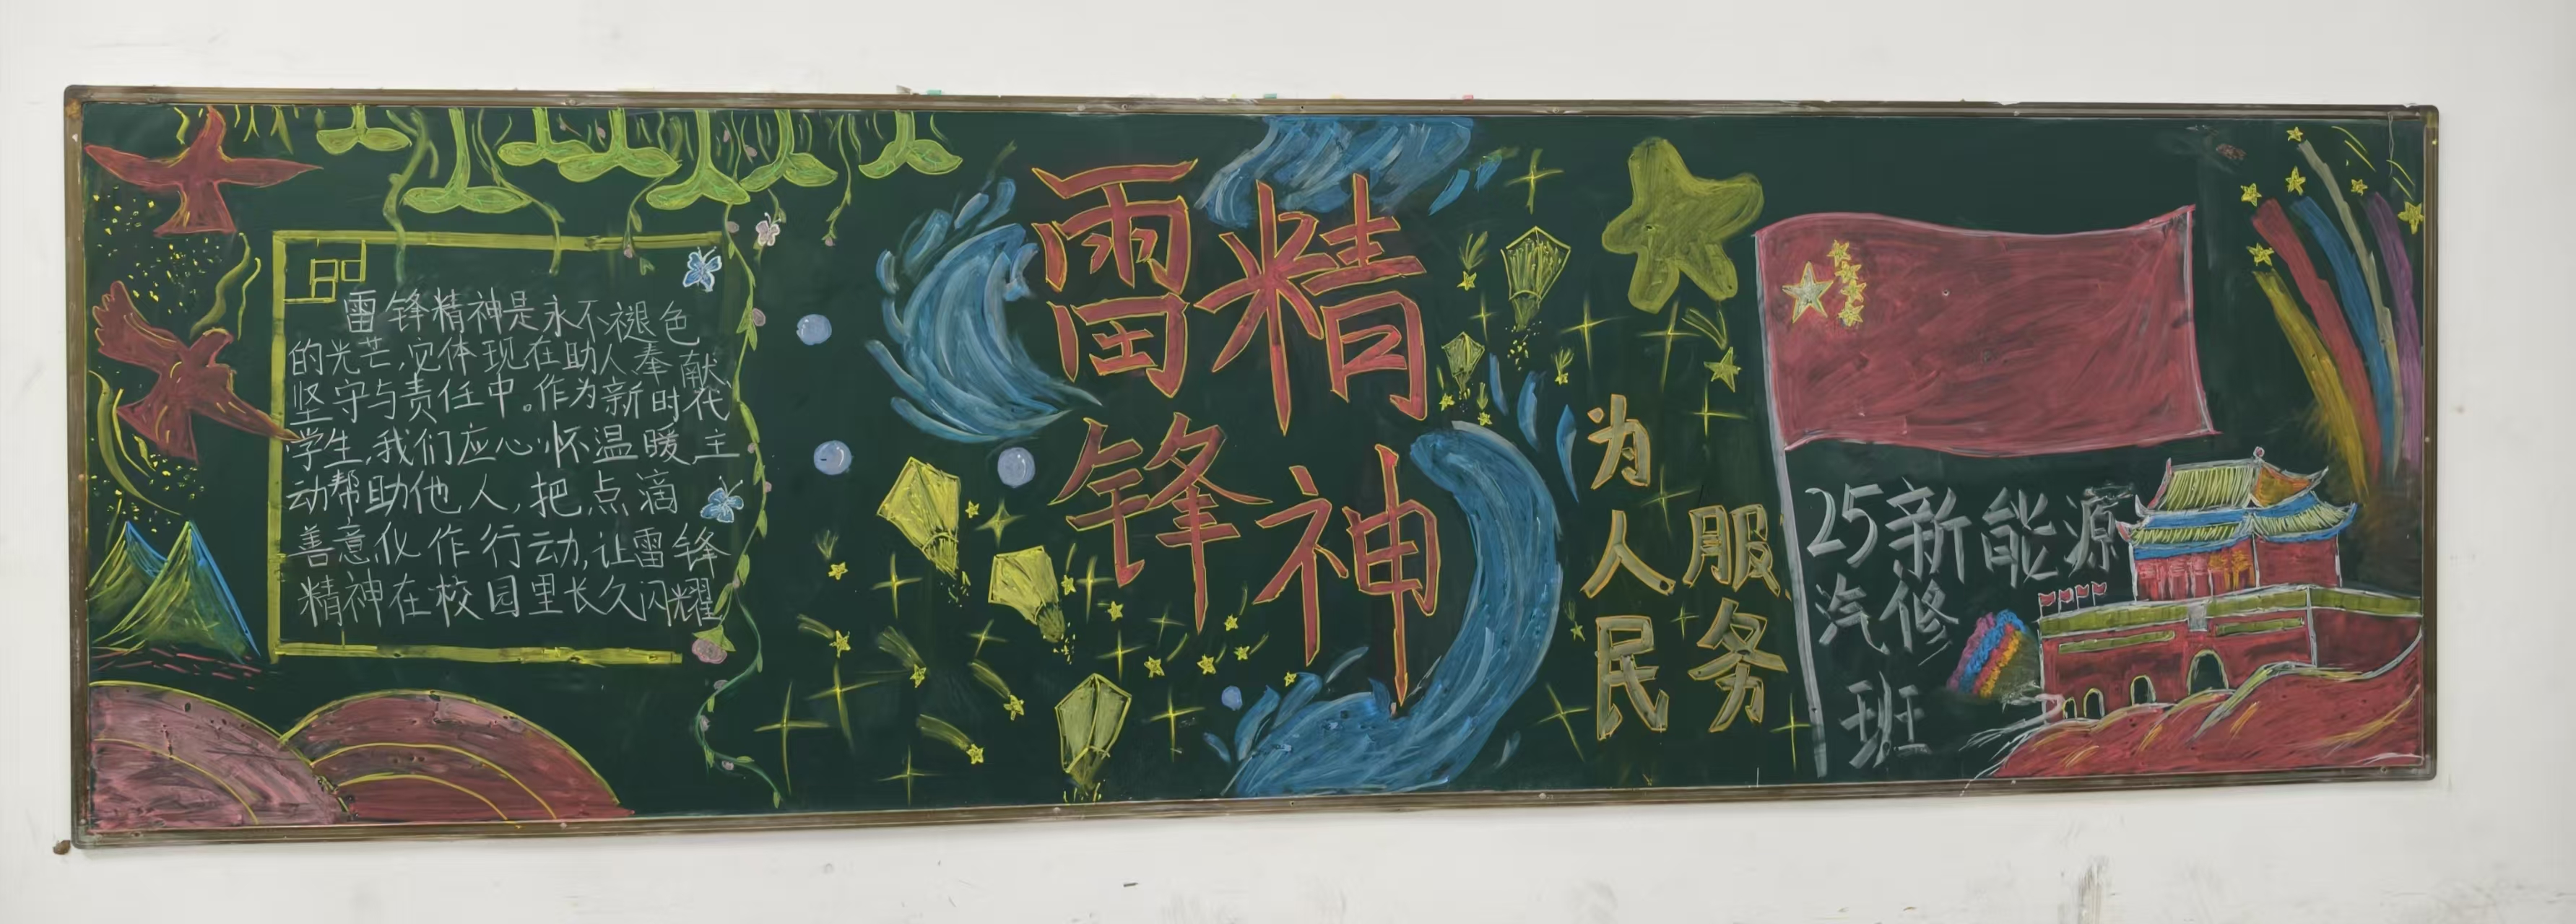 雷锋精神是永不褪色
的光芒,它体现在助人、奉献
坚守与责任中。作为新时代
学生,我们应心怀温暖主
动帮助他人,把点滴
善意化作行动,让雷锋
精神在校园里长久闪耀
雷精
锋神
为人民
服务
25新能源
汽修
班